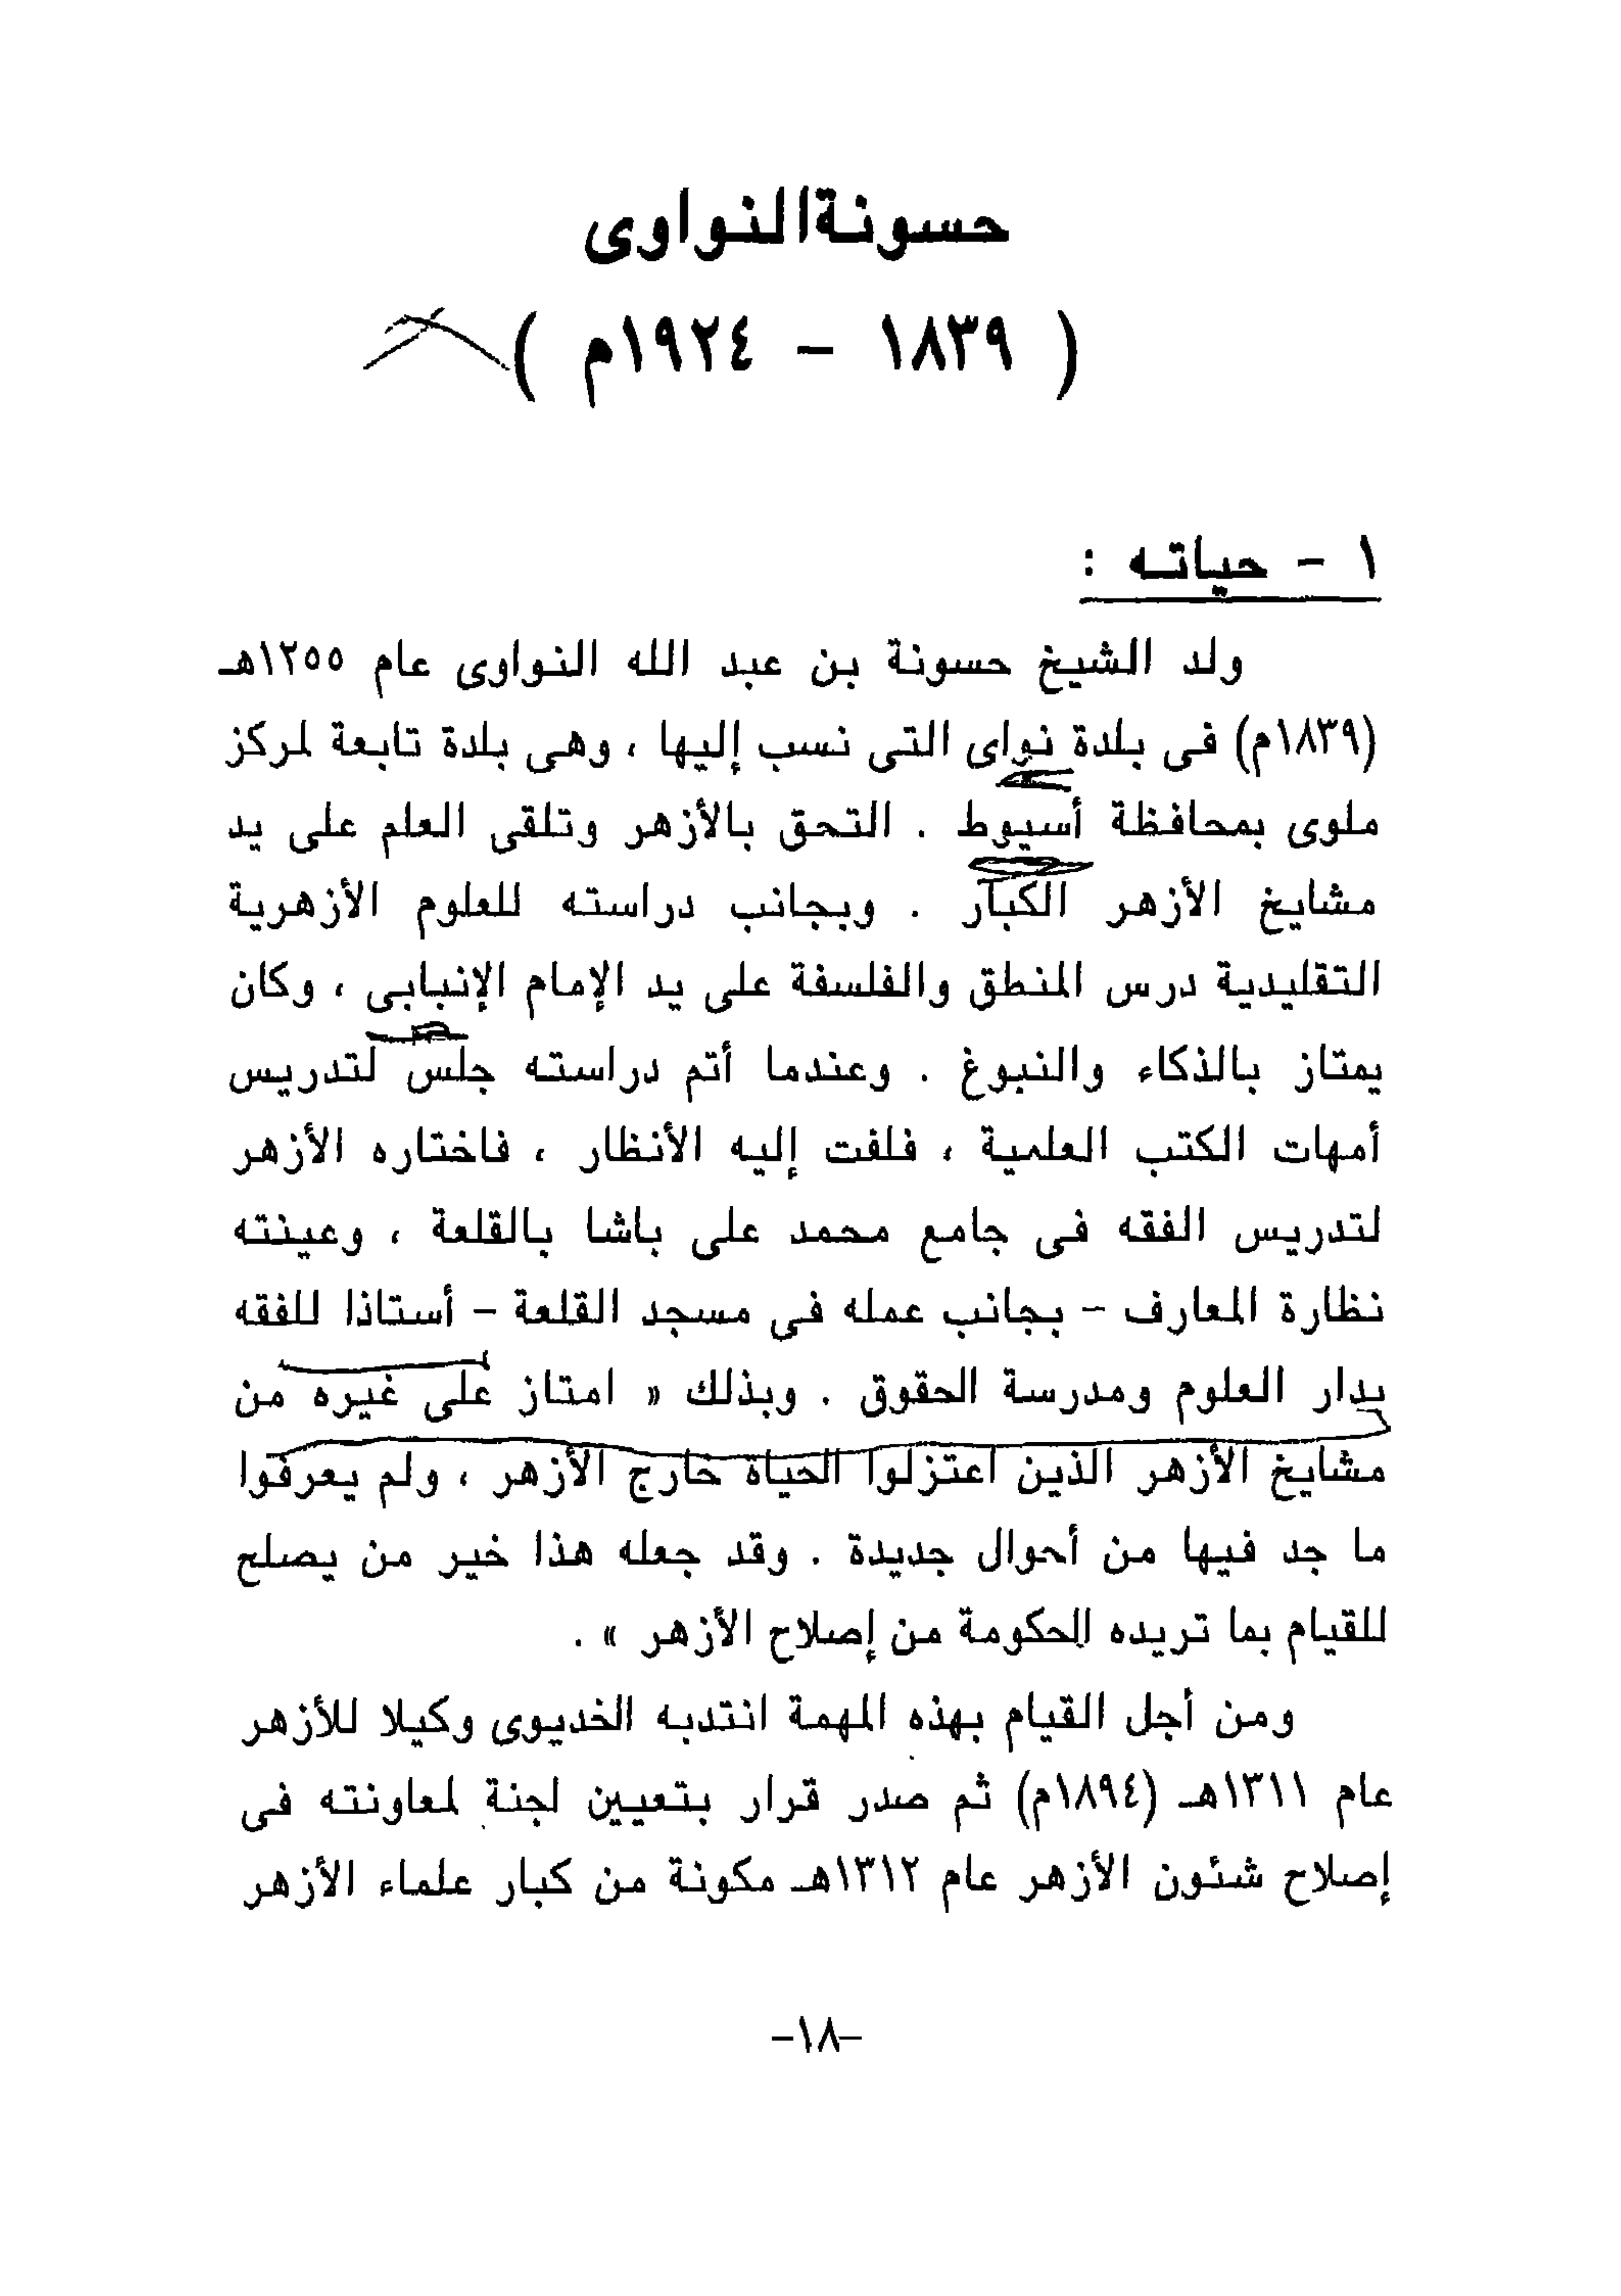 حسونة النواوى
( ١٨٣٩ – ١٩٢٤م )
١ – حياته :
ولد الشيخ حسونة بن عبد الله النواوى عام ١٢٥٥هـ
(١٨٣٩م) فى بلدة نواى التى نسب إليها ، وهى بلدة تابعة لمركز
ملوى بمحافظة أسيوط . التحق بالأزهر وتلقى العلم على يد
مشايخ الأزهر الكبار . وبجانب دراسته للعلوم الأزهرية
التقليدية درس المنطق والفلسفة على يد الإمام الإنبابى ، وكان
يمتاز بالذكاء والنبوغ . وعندما أتم دراسته جلس لتدريس
أمهات الكتب العلمية ، فلفت إليه الأنظار ، فاختاره الأزهر
لتدريس الفقه فى جامع محمد على باشا بالقلعة ، وعينته
نظارة المعارف – بجانب عمله فى مسجد القلعة – أستاذا للفقه
بدار العلوم ومدرسة الحقوق . وبذلك « امتاز على غيره من
مشايخ الأزهر الذين اعتزلوا الحياة خارج الأزهر ، ولم يعرفوا
ما جد فيها من أحوال جديدة . وقد جعله هذا خير من يصلح
للقيام بما تريده الحكومة من إصلاح الأزهر » .
ومن أجل القيام بهذه المهمة انتدبه الخديوى وكيلا للأزهر
عام ١٣١١هـ (١٨٩٤م) ثم صدر قرار بتعيين لجنة لمعاونته فى
إصلاح شئون الأزهر عام ١٣١٢هـ مكونة من كبار علماء الأزهر
–١٨–